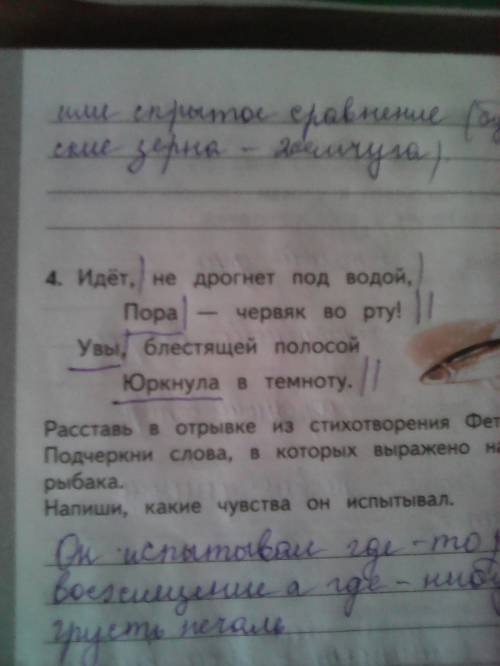 или скрытое сравнение
ские зерна - жемчуга)
4. Идёт, не дрогнет под водой,
Пора — червяк во рту!
Увы, блестящей полосой
Юркнула в темноту.
Расставь в отрывке из стихотворения Фет
Подчеркни слова, в которых выражено на
рыбака.
Напиши, какие чувства он испытывал.
Он испытывал где-то
восхищение а где-нибу
грусть печаль